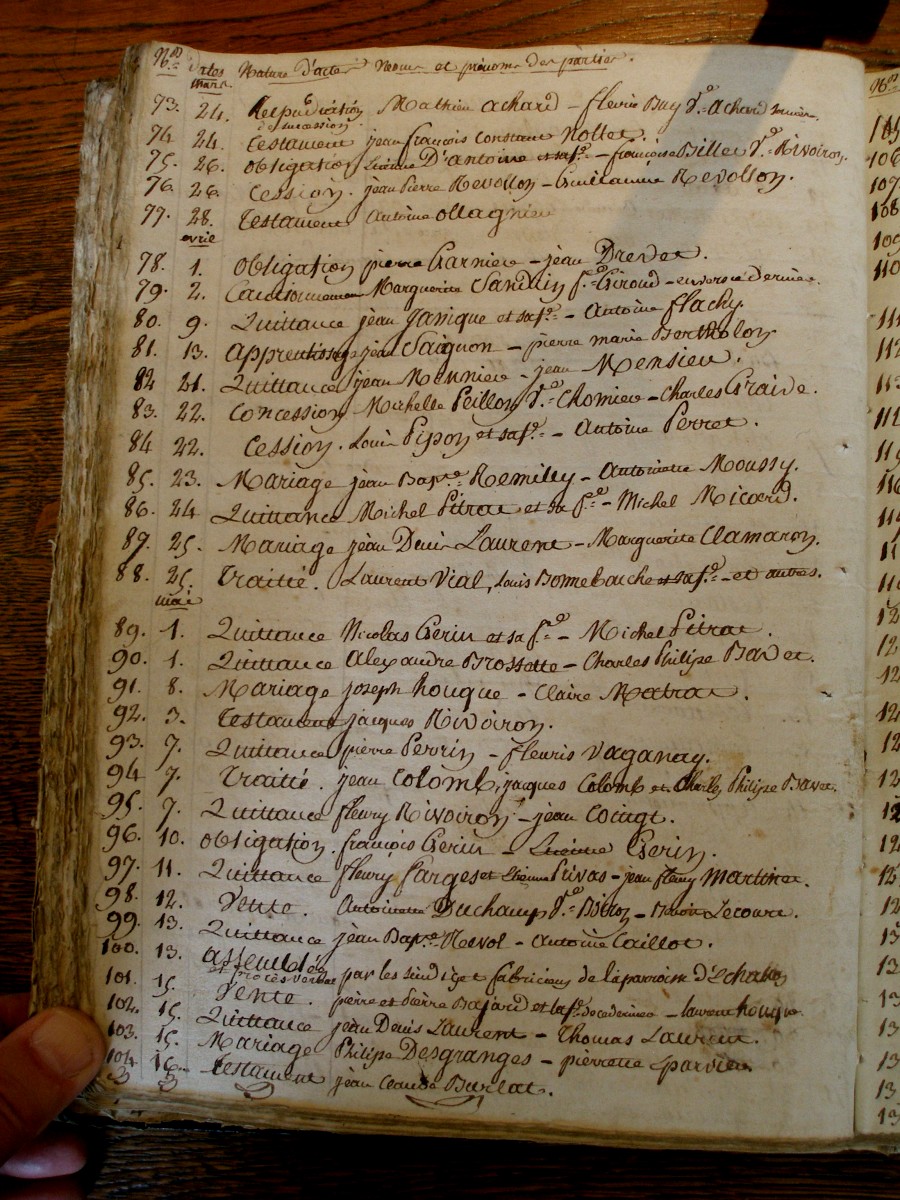 Nos. Dates Nature d'actes Noms et prénoms des parties.
Mars.
73. 24. Répudiation Mathieu Achard – fleurie Buy Ve. Achard
de succession
74 24. Testament jean françois Constant Nollet.
75. 26. obligation D'antoine et sa fe. – françoise Billet Ve. Rivoiron.
76. 26. Cession. jean Pierre Revollon – Guillaume Revollon.
77. 28. Testament Antoine ollagnier
avril
78. 1. Obligation pierre Garniere – jean Drevet.
79. 2. Cautionnement Marguerite fe. Giroud – envers ce dernier.
80. 9. Quittance jean janique et sa fe. – Antoine flachy.
81. 13. Apprentissage jean Saignon – pierre marie Bertholon
82 21. Quittance jean Meunniere – jean Mensieu.
83. 22. Concession Michelle Peillon Ve. Chomier – Charles
84 22. Cession. Louis Pipon et sa fe. – Antoine Perret.
85. 23. Mariage jean Bapte. Remilly – Antoinette Moussy.
86. 24 Quittance Michel Pitrat et sa fe. – Michel Micard.
87. 25. Mariage jean Denis Laurent – Marguerite Clamaron.
88. 25. Traitté. Laurent Vial, Louis Bonnebauche et sa fe. – et autres.
mai
89. 1. Quittance Nicolas Gerin et sa fe. – Michel Pitrat.
90. 1. Quittance Alexandre Brossette – Charles Philipe Bavet.
91. 8. Mariage joseph houque – Claire Matrat.
92. 3. Testament jacques Rivoiron.
93. 7. Quittance pierre Perrin – fleuris Vaganay.
94 7. Traitté. jean Colomb, jacques Colomb et Charles Philipe Bavet.
95. 7. Quittance fleury Rivoiron – jean Coingt.
96. 10. obligation. françois Gerin – Gerin.
97. 11. Quittance fleury farges et Etienne Privas – jean fleury Martinet.
98. 12. Vente. Antoinette Duchamp Ve. – Lecourt.
99. 13. Quittance jean Bapte. Revol – Antoine Caillot.
100. 13. Assemblée par les sindiq et fabriciens de la paroisse d'Echalas
et procès verbal
101. 15. Vente. pierre et Pierre Bajard et la fe. de ce dernier – laurent houque.
102. 15. Quittance jean Denis Laurent – Thomas Laurent.
103. 15. Mariage Philipe Desgranges – pierrette Eparvier.
104 16. Testament jean Claude Burlat.
106
107
108
109
110
111
112
113